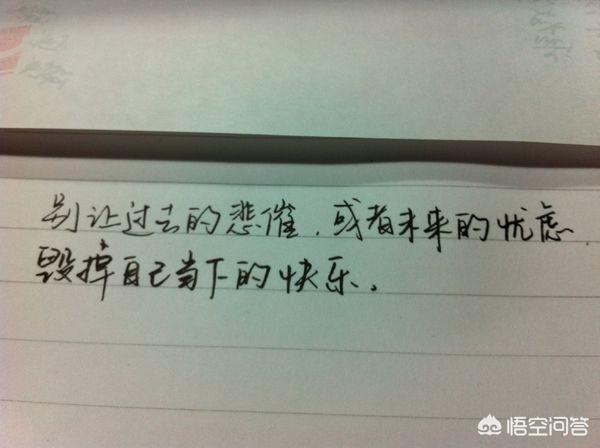 别让过去的悲催，或者未来的忧虑
毁掉自己当下的快乐。
悟空问答